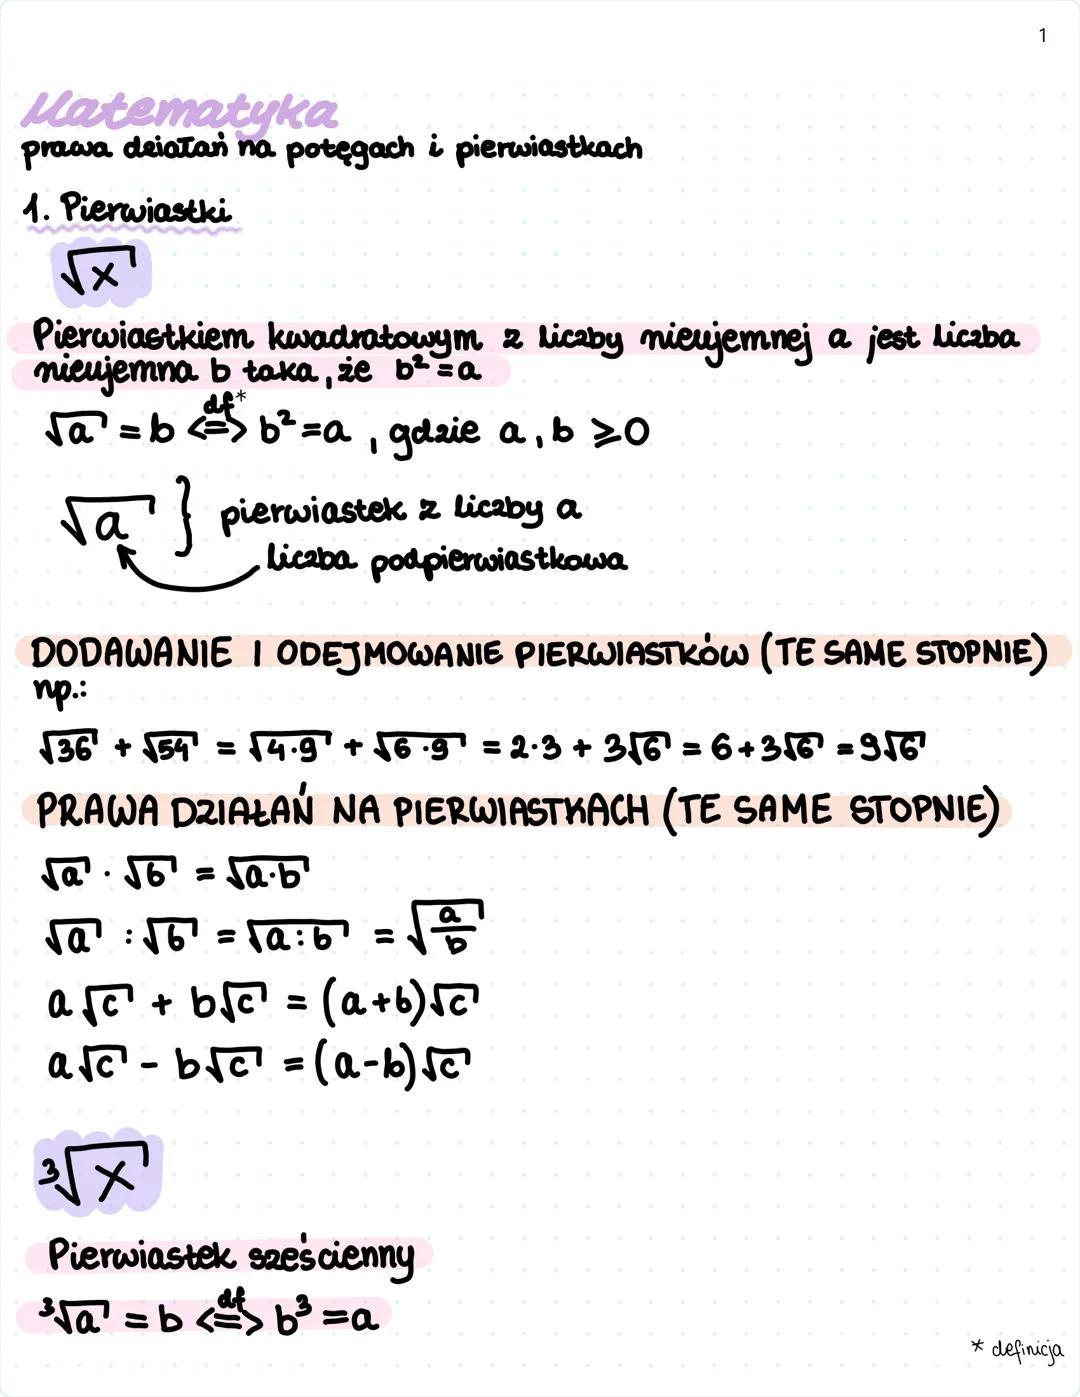 1
Matematyka
prawa działań na potęgach i pierwiastkach
1. Pierwiastki
√x
Pierwiastkiem kwadratowym z liczby nieujemnej a jest liczba
nieujemna b taka, że b² = a
√a = b <=> b² = a, gdzie a, b ⩾ 0
df*
√a } pierwiastek z liczby a
liczba podpierwiastkowa
DODAWANIE I ODEJMOWANIE PIERWIASTKÓW (TE SAME STOPNIE)
np.:
√36 + √54 = √4·9 + √6·9 = 2·3 + 3√6 = 6+3√6 = 9√6
PRAWA DZIAŁAŃ NA PIERWIASTKACH (TE SAME STOPNIE)
√a · √b = √a·b
√a : √b = √a:b = √a/b
a√c + b√c = (a+b)√c
a√c - b√c = (a-b)√c
³√x
Pierwiastek sześcienny
df
³√a = b <=> b³ = a
* definicja